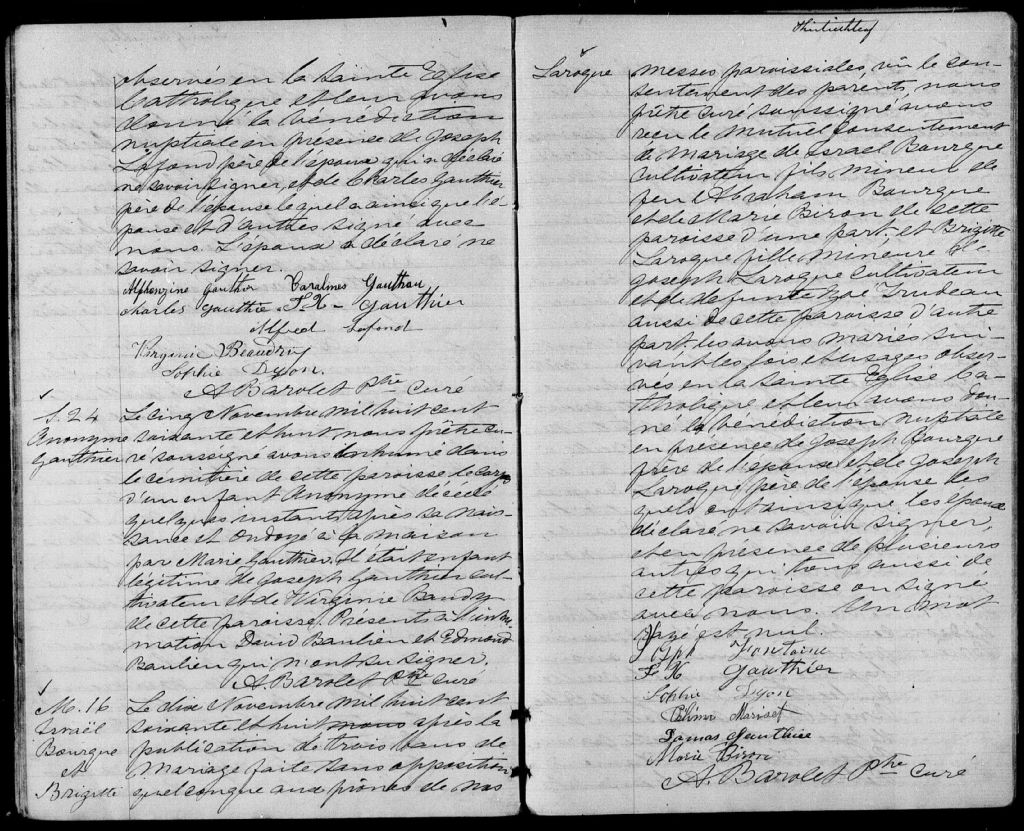 observés en la Sainte Eglise
Catholique et leur avons
donné la bénédiction
nuptiale en présense de Joseph
Lafond père de l'époux qui a déclaré
ne savoir signer, et de Charles Gauthier
père de l'épouse lequel a ainsi que l'é-
pouse et d'autres signé avec
nous. L'époux a déclaré ne
savoir signer.
Alphonzine Gauthier
Charles Gauthie F. X. Gauthier
Alfred Lafond
Virginie Beaudry
Sophie Dyon.
A. Barolet Ptre curé
S. 24
Anonyme
Gauthier
Le cinq Novembre mil huit cent
soixante et huit, nous prêtre cu-
ré soussigné avons inhumé dans
le cémitière de cette paroisse le corps
d'un enfant Anonyme décédé
quelques instants après sa nais-
sance et ondoyé à la maison
par Marie Gauthier. Il était enfant
légitime de Joseph Gauthier cul-
tivateur et de Virginie Baudry
de cette paroisse. Présents à l'inhu-
mation David Baulieu et Edmond
Baulieu qui n'ont su signer.
A. Barolet Ptre curé
M. 16
Israël
Bourque
et
Brigitte
Le dix Novembre mil huit cent
soixante et huit nous après la
publication de trois bans de
Mariage faite sans opposition
quelconque aux prônes de nos
Laroque
messes paroissiales, vû le con-
sentement des parents, nous
prêtre curé soussigné avons
reçu le mutuel consentement
de mariage de Israel Bourque
Cultivateur fils mineur de
feu Abraham Bourque
et de Marie Biron de cette
paroisse d'une part, et Brigitte
Laroque fille mineure de
Joseph Laroque Cultivateur
et de defunte Zoé Trudeau
aussi de cette paroisse d'autre
part, les avons mariés sui-
vant les lois et usages obser-
vés en la Sainte Eglise Ca-
tholique et leur avons don-
né la bénédiction nuptiale
en présence de Joseph Bourque
frère de l'époux et de Joseph
Laroque père de l'épouse les
quels ont ainsi que les époux
déclaré ne savoir signer,
et en présence de plusieurs
autres qui tous aussi de
cette paroisse on signé
avec nous. Un mot
rayé est nul.
Josph Fontaine
F X Gauthier
Sophie Dyon
Damas Gauthier
Marie Biron
A. Barolet Ptre curé